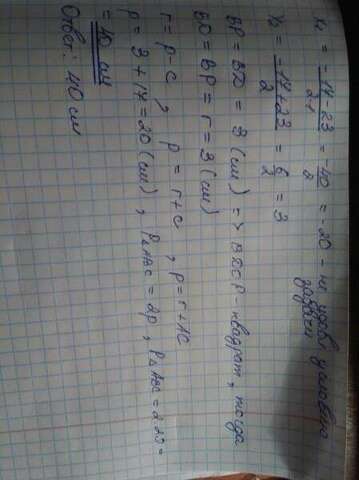 x₁ = -17-23 / 2·1 = -40 / 2 = -20 - не удов. условию задачи
x₂ = -17+23 / 2 = 6 / 2 = 3
BP = BD = 3 (см) => - квадрат, тогда
BO = BP = r = 3 (см)
r = p-c , p = r+c , p = r+AC
p = 3 + 17 = 20 (см) , P△ABC = 2p , P△ABC = 2·20 =
= 40 см
Ответ: 40 см